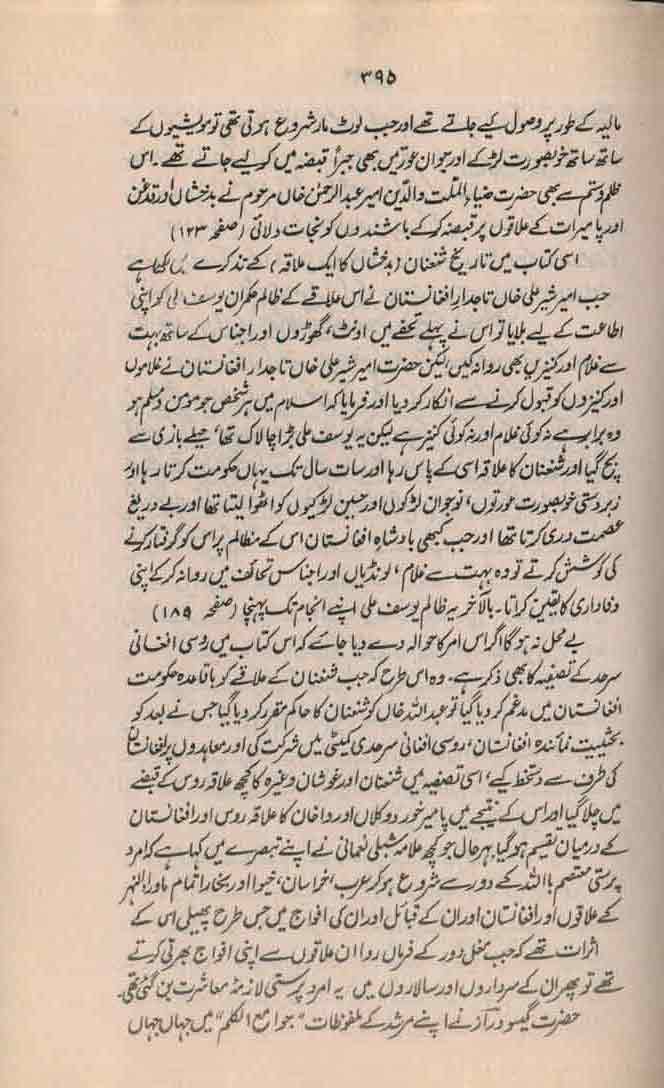 ۳۹۵
مالیہ کے طور پر وصول کیے جاتے تھے اور جب لوٹ مار شروع ہوتی تھی تو مویشیوں کے
ساتھ ساتھ خوبصورت لڑکے اور جوان عورتیں بھی جبراً قبضہ میں کر لیے جاتے تھے۔ اس
ظلم و ستم سے بھی حضرت ضیاء الملت والدین امیر عبدالرحمٰن خاں مرحوم نے بدخشاں اور قدغن
اور پامیرات کے علاقوں پر قبضہ کر کے باشندوں کو نجات دلائی (صفحہ ۱۲۳)
اسی کتاب میں تاریخ شغنان (بدخشاں کا ایک علاقہ) کے تذکرے میں لکھا ہے
جب امیر شیر علی خاں تاجدار افغانستان نے اس علاقے کے ظالم حکمران یوسف علی کو اپنی
اطاعت کے لیے بلایا تو اس نے پہلے تحفے میں اونٹ، گھوڑوں اور اجناس کے ساتھ بہت
سے غلام اور کنیزیں بھی روانہ کیں لیکن حضرت امیر شیر علی خاں تاجدار افغانستان نے غلاموں
اور کنیزوں کو قبول کرنے سے انکار کر دیا اور فرمایا کہ اسلام میں ہر شخص جو مومن و مسلم ہو
وہ برابر ہے نہ کوئی غلام اور نہ کوئی کنیز ہے لیکن یہ یوسف علی بڑا چالاک تھا، حیلے بازی سے
بچ گیا اور شغنان کا علاقہ اسی کے پاس رہا اور سات سال تک یہاں حکومت کرتا رہا اور
زبردستی خوبصورت عورتوں، نوجوان لڑکوں اور حسین لڑکیوں کو اٹھوا لیتا تھا اور بے دریغ
عصمت دری کرتا تھا اور جب کبھی بادشاہ افغانستان اس کے مظالم پر اس کو گرفتار کرنے
کی کوشش کرتے تو وہ بہت سے غلام، لونڈیاں اور اجناس تحائف میں روانہ کر کے اپنی
وفاداری کا یقین کراتا۔ بالآخر یہ ظالم یوسف علی اپنے انجام تک پہنچا (صفحہ ۱۸۹)
بے محل نہ ہوگا اگر اس امر کا حوالہ دے دیا جائے کہ اس کتاب میں روسی افغانی
سرحد کے تصفیہ کا بھی ذکر ہے۔ وہ اس طرح کہ جب شغنان کے علاقے کو باقاعدہ حکومت
افغانستان میں مدغم کر دیا گیا تو عبداللہ خاں کو شغنان کا حاکم مقرر کر دیا گیا جس نے بعد کو
بحیثیت نمائندہ افغانستان، روسی افغانی سرحدی کمیٹی میں شرکت کی اور معاہدوں پر افغانستان
کی طرف سے دستخط کیے، اسی تصفیہ میں شغنان اور غوشان وغیرہ کا کچھ علاقہ روس کے قبضے
میں چلا گیا اور اس کے نتیجے میں پامیر خورد و کلاں اور واخان کا علاقہ روس اور افغانستان
کے درمیان تقسیم ہو گیا بہر حال جو کچھ علامہ شبلی نعمانی نے اپنے تبصرے میں کہا ہے کہ امرد
پرستی معتصم باللہ کے دور سے شروع ہو کر عرب، خراسان، خیوا اور بخارا تمام ماورالنہر
کے علاقوں اور افغانستان اور ان کے قبائل اور ان کی افواج میں جس طرح پھیلی اس کے
اثرات تھے کہ جب مغل دور کے فرماں روا ان علاقوں سے اپنی افواج بھرتی کرتے
تھے تو پھر ان کے سرداروں اور سالاروں میں یہ امرد پرستی لازمۂ معاشرت بن گئی تھی۔
حضرت گیسو دراز نے اپنے مرشد کے ملفوظات "جوامع الکلم" میں جہاں جہاں